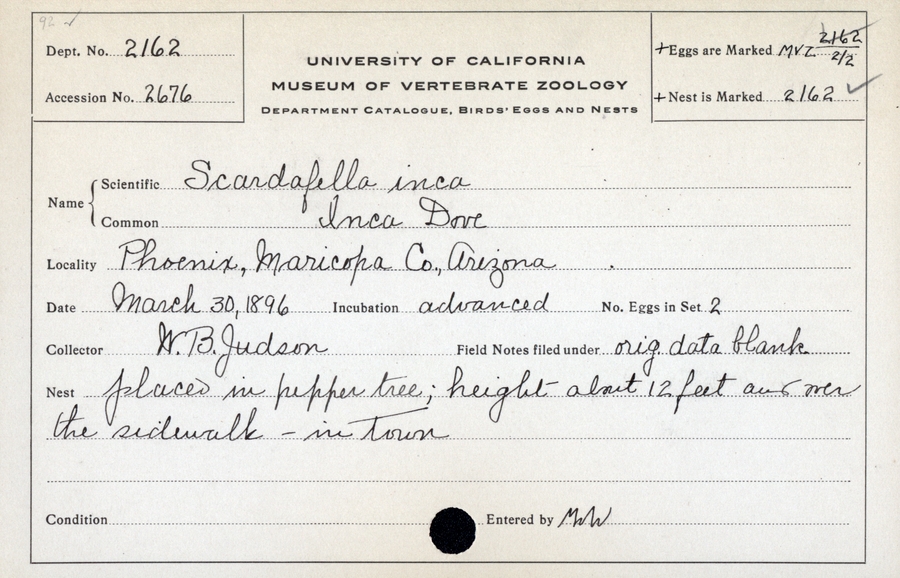 92 ✓
Dept. No. 2162
Accession No. 2676
UNIVERSITY OF CALIFORNIA
MUSEUM OF VERTEBRATE ZOOLOGY
DEPARTMENT CATALOGUE, BIRDS' EGGS AND NESTS
+Eggs are Marked MVZ 2162
2/2
+Nest is Marked 2162 ✓
Name
Scientific Scardafella inca
Common Inca Dove
Locality Phoenix, Maricopa Co., Arizona
Date March 30, 1896 Incubation advanced No. Eggs in Set 2
Collector W.B. Judson Field Notes filed under orig data blank
Nest placed in pepper tree; height about 12 feet and over
the sidewalk – in town
Condition Entered by